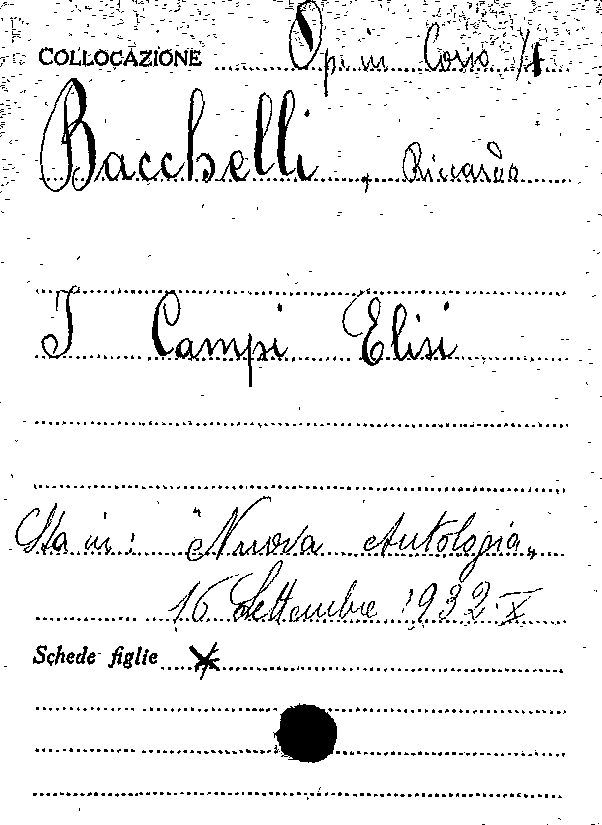 COLLOCAZIONE Op. in Corso 1/4
Bacchelli, Riccardo
I Campi Elisi
Sta in: "Nuova Antologia„
16 Settembre 1932-X
Schede figlie